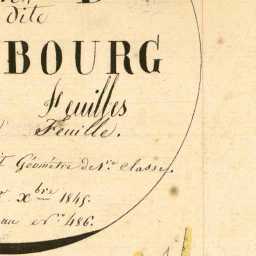 dite
BOURG
Feuilles
Feuille.
Géomètre de 1re Classe.
Xbre 1845.
au No 486.